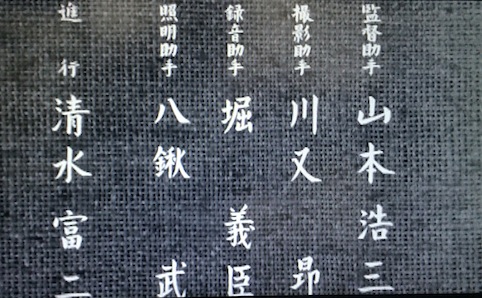 監督助手 山本浩三
撮影助手 川又昂
録音助手 堀義臣
照明助手 八鍬武
進行 清水富二